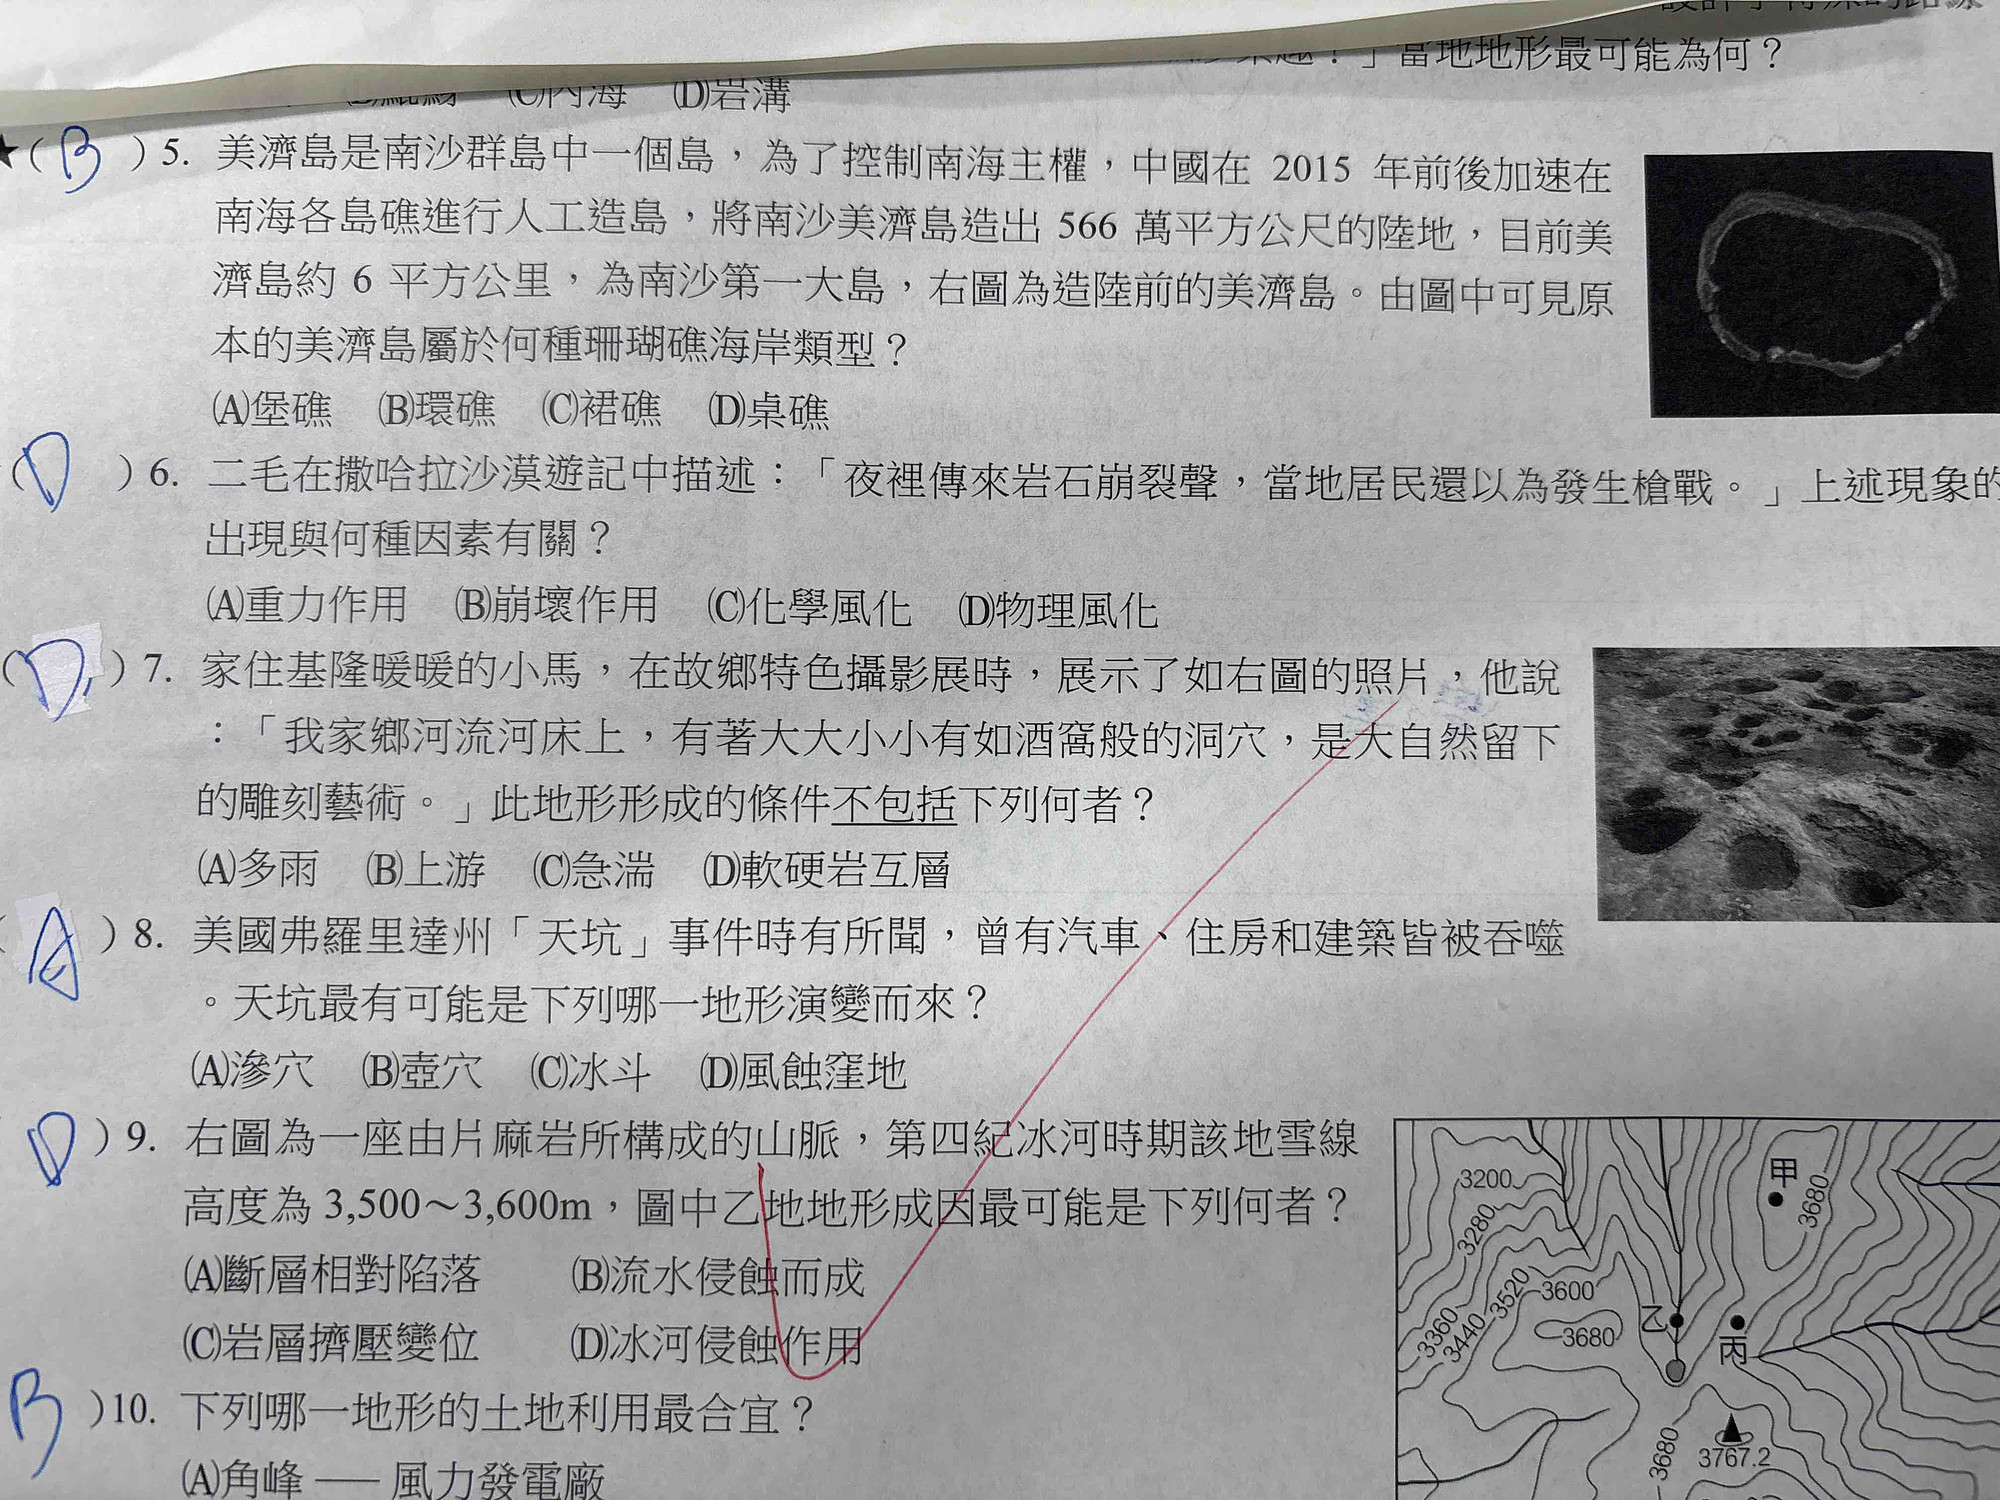 」當地地形最可能為何？
(C)內海　(D)岩溝
★( B ) 5. 美濟島是南沙群島中一個島，為了控制南海主權，中國在 2015 年前後加速在
南海各島礁進行人工造島，將南沙美濟島造出 566 萬平方公尺的陸地，目前美
濟島約 6 平方公里，為南沙第一大島，右圖為造陸前的美濟島。由圖中可見原
本的美濟島屬於何種珊瑚礁海岸類型？
(A)堡礁　(B)環礁　(C)裙礁　(D)桌礁
( D ) 6. 二毛在撒哈拉沙漠遊記中描述：「夜裡傳來岩石崩裂聲，當地居民還以為發生槍戰。」上述現象的
出現與何種因素有關？
(A)重力作用　(B)崩壞作用　(C)化學風化　(D)物理風化
( D ) 7. 家住基隆暖暖的小馬，在故鄉特色攝影展時，展示了如右圖的照片，他說
：「我家鄉河流河床上，有著大大小小有如酒窩般的洞穴，是大自然留下
的雕刻藝術。」此地形形成的條件不包括下列何者？
(A)多雨　(B)上游　(C)急湍　(D)軟硬岩互層
( A ) 8. 美國弗羅里達州「天坑」事件時有所聞，曾有汽車、住房和建築皆被吞噬
。天坑最有可能是下列哪一地形演變而來？
(A)滲穴　(B)壺穴　(C)冰斗　(D)風蝕窪地
( D ) 9. 右圖為一座由片麻岩所構成的山脈，第四紀冰河時期該地雪線
高度為 3,500～3,600m，圖中乙地地形成因最可能是下列何者？
(A)斷層相對陷落　(B)流水侵蝕而成
(C)岩層擠壓變位　(D)冰河侵蝕作用
3200
3280
3360
3440
3520
3600
3680
甲
3680
乙
丙
3680
3767.2
B )10. 下列哪一地形的土地利用最合宜？
(A)角峰 — 風力發電廠